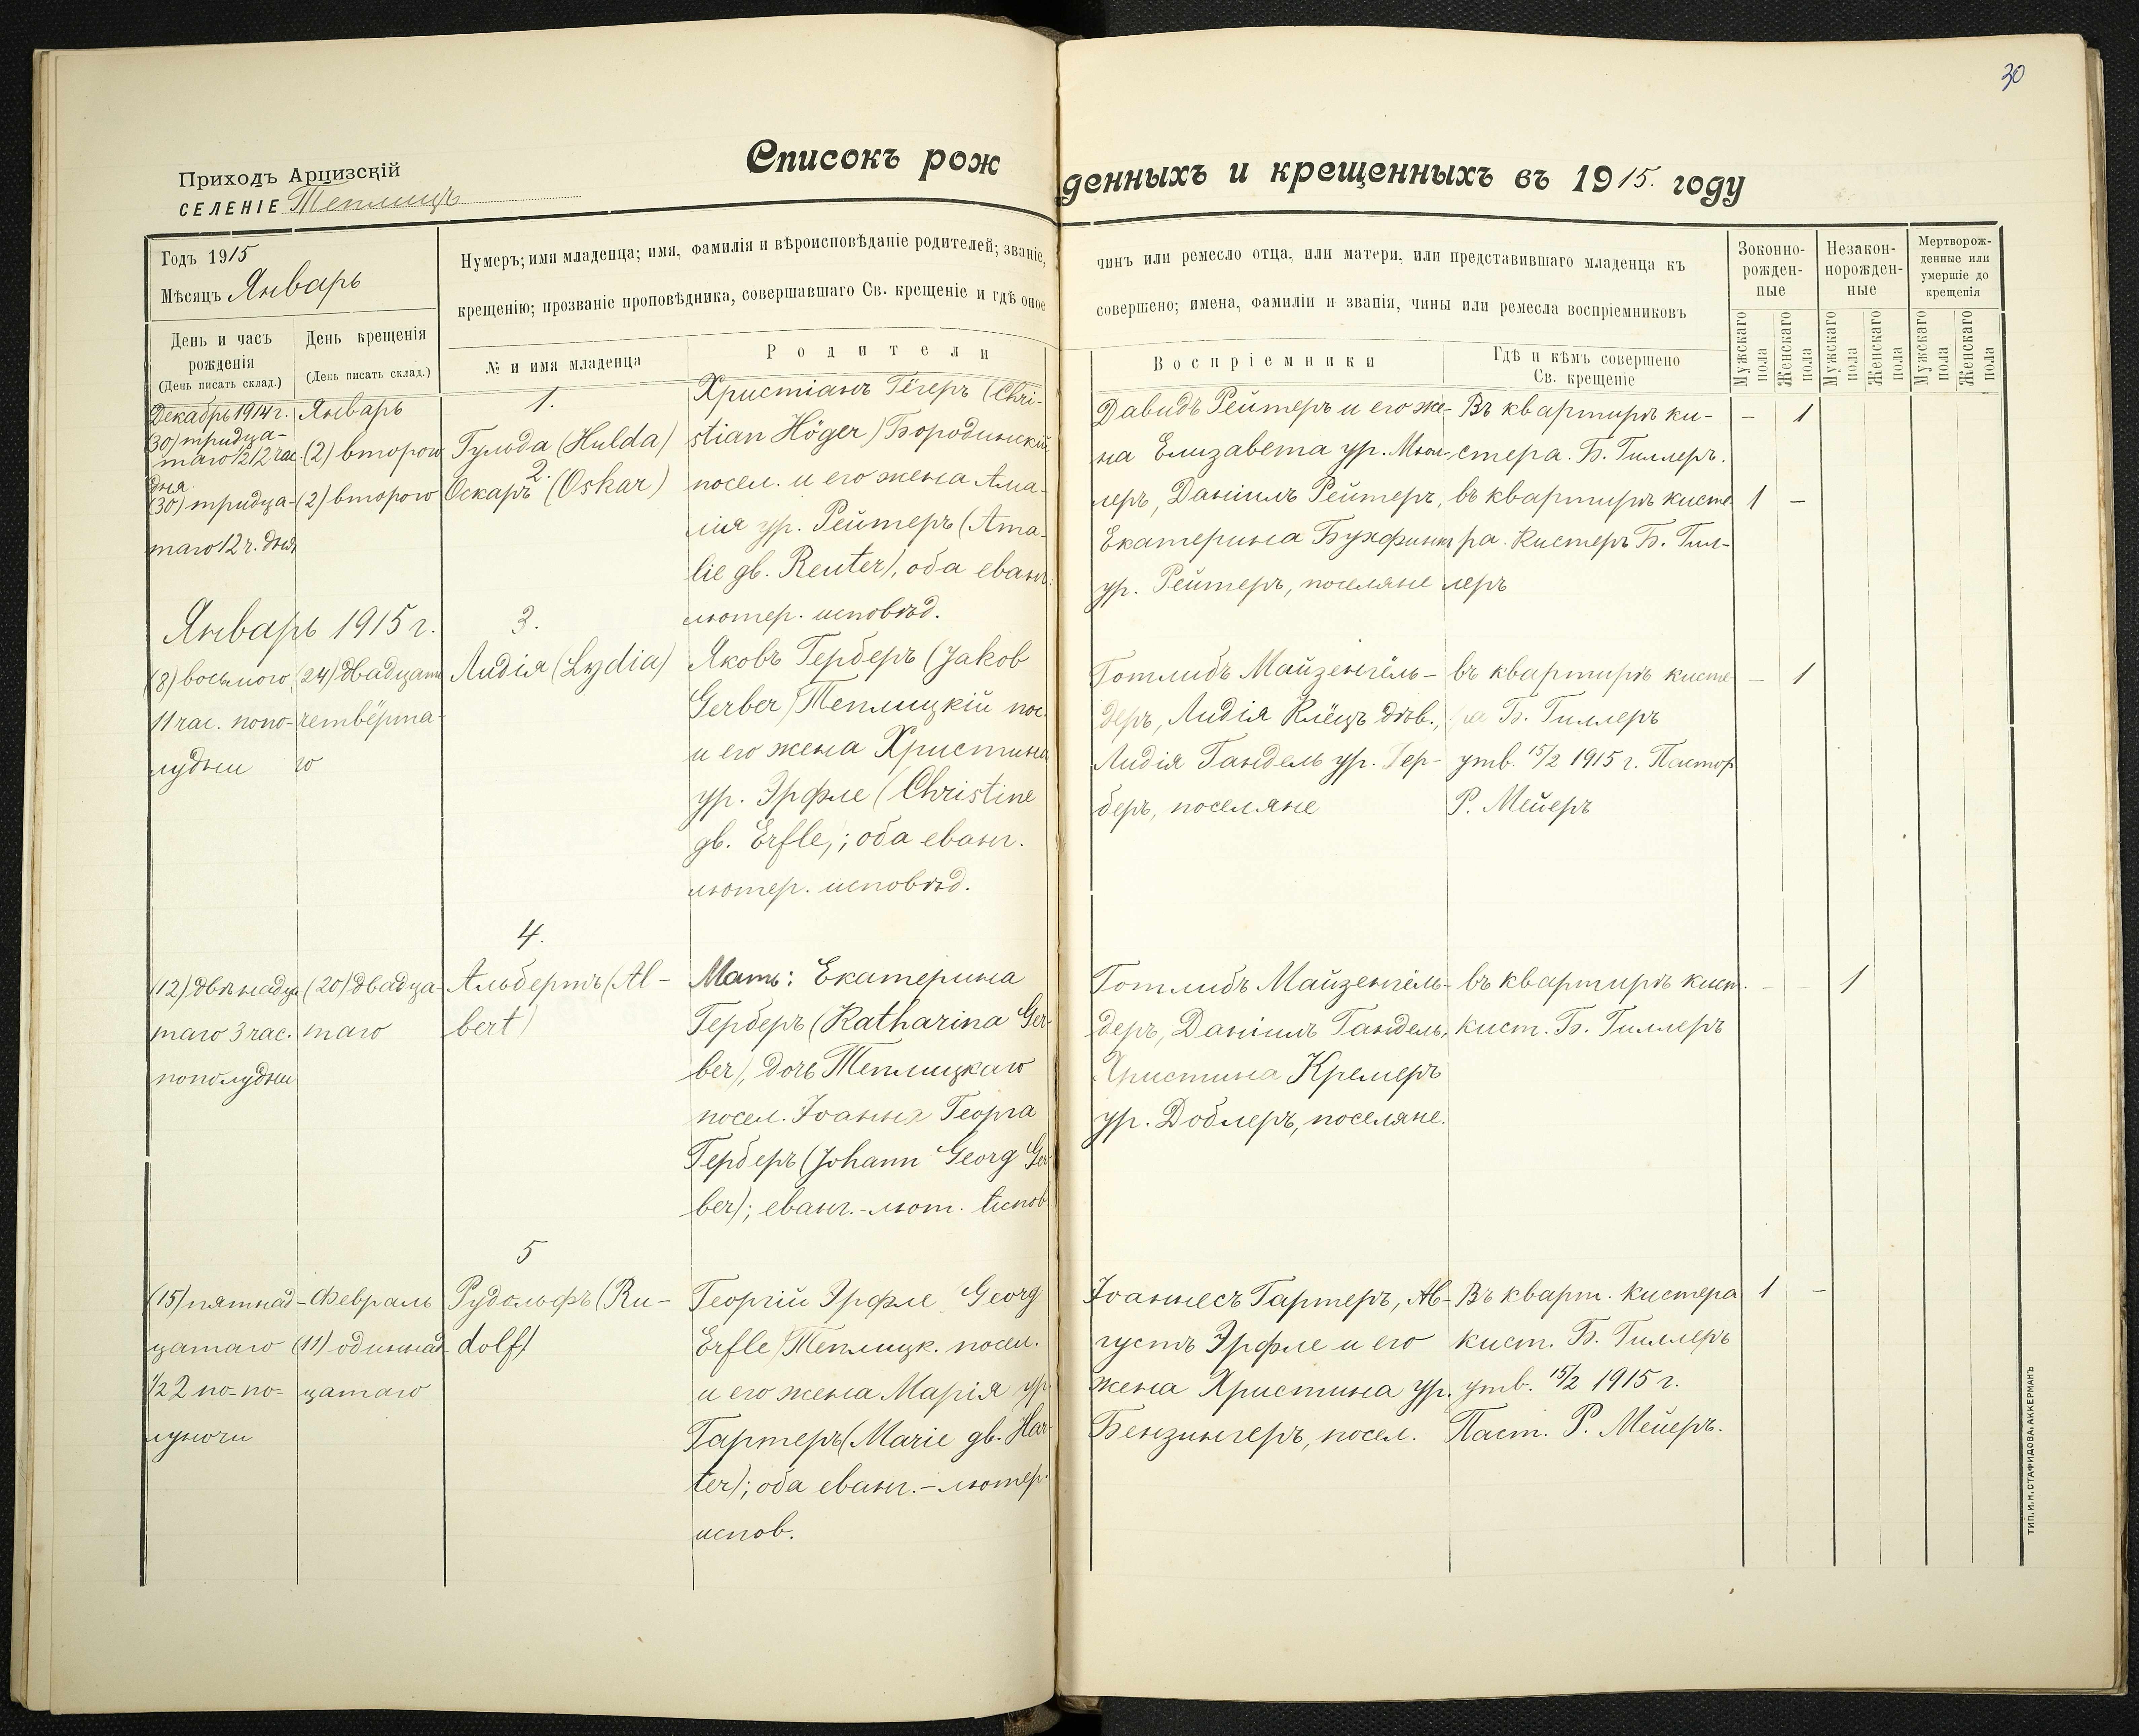 30
Приходъ Арцизскій
СЕЛЕНІЕ Теплицъ
Списокъ рожденныхъ и крещенныхъ въ 1915. году
Годъ 1915
Мѣсяцъ Январь
День и часъ
рожденія
(День писать склад.)
День крещенія
(День писать склад.)
Нумеръ; имя младенца; имя, фамилія и вѣроисповѣданіе родителей; званіе,
крещенію; прозваніе проповѣдника, совершавшаго Св. крещеніе и гдѣ оное
№ и имя младенца
Родители
чинъ или ремесло отца, или матери, или представившаго младенца къ
совершено; имена, фамиліи и званія, чины или ремесла воспріемниковъ
Воспріемники
Гдѣ и кѣмъ совершено
Св. крещеніе
Зоконно-
рожден-
ные
Незакон-
норожден-
ные
Мертворож-
денные или
умершіе до
крещенія
Мужскаго
пола
Женскаго
пола
Мужскаго
пола
Женскаго
пола
Мужскаго
пола
Женскаго
пола
Декабрь 1914 г.
(30) тридца-
таго 12 час.
дня
Январь
(2) второго
1.
Гульда (Hulda)
(30) тридца-
таго 12 ч. дня
(2) второго
2.
Оскаръ (Oskar)
Христіанъ Гёгеръ (Chri-
stian Höger) Бородинскій
посел. и его жена Ама-
лія ур. Рейтеръ (Ama-
lie gb. Reuter), оба еванг.
лютер. исповѣд.
Давидъ Рейтеръ и его же-
на Елизавета ур. Мюл-
леръ, Даніилъ Рейтеръ,
Екатерина Бухфинкъ
ур. Рейтеръ, поселяне
Въ квартирѣ ки-
стера. Б. Гиллеръ.
въ квартирѣ кисте-
ра. Кистеръ Б. Гил-
леръ
— 1
1 —
Январь 1915 г.
(8) восьмого
11 час. попо-
лудни
(24) двадцать
четвёрта-
го
3.
Лидія (Lydia)
Яковъ Герберъ (Jakob
Gerber) Теплицкій пос.
и его жена Христина
ур. Эрфле (Christine
gb. Erfle); оба еванг.
лютер. исповѣд.
Готлибъ Майзенгёль-
деръ, Лидія Клёцъ дѣв.,
Лидія Гандель ур. Гер-
беръ, поселяне
въ квартирѣ кисте-
ра Б. Гиллеръ
утв. 15/2 1915 г. Пастор
Р. Мейеръ
— 1
(12) двѣнадца
таго 3 час.
пополудни
(20) двадца-
таго
4.
Альбертъ (Al-
bert)
Мать: Екатерина
Герберъ (Katharina Ger-
ber), дочь Теплицкаго
посел. Іоанна Георга
Герберъ (Johann Georg Ger
ber); еванг.-лют. испов.
Готлибъ Майзенгёль-
деръ, Даніилъ Гандель,
Христина Кремеръ
ур. Доблеръ, поселяне.
въ квартирѣ кист.
кист. Б. Гиллеръ
— — 1
(15) пятнад-
цатаго
1/2 2 по-по-
луночи
Февраль
(11) одиннад-
цатаго
5
Рудольфъ (Ru-
dolf)
Георгій Эрфле Georg
Erfle) Теплицк. посел.
и его жена Марія ур.
Гартеръ (Marie gb. Har-
ter); оба еванг.-лютер.
испов.
Іоаннесъ Гартеръ, Ав-
густъ Эрфле и его
жена Христина ур.
Бензингеръ, посел.
Въ кварт. кистера
кист. Б. Гиллеръ
утв. 15/2 1915 г.
Паст. Р. Мейеръ.
1 —
ТИП. И. Н. СТАФИДОВА. АККЕРМАНЪ